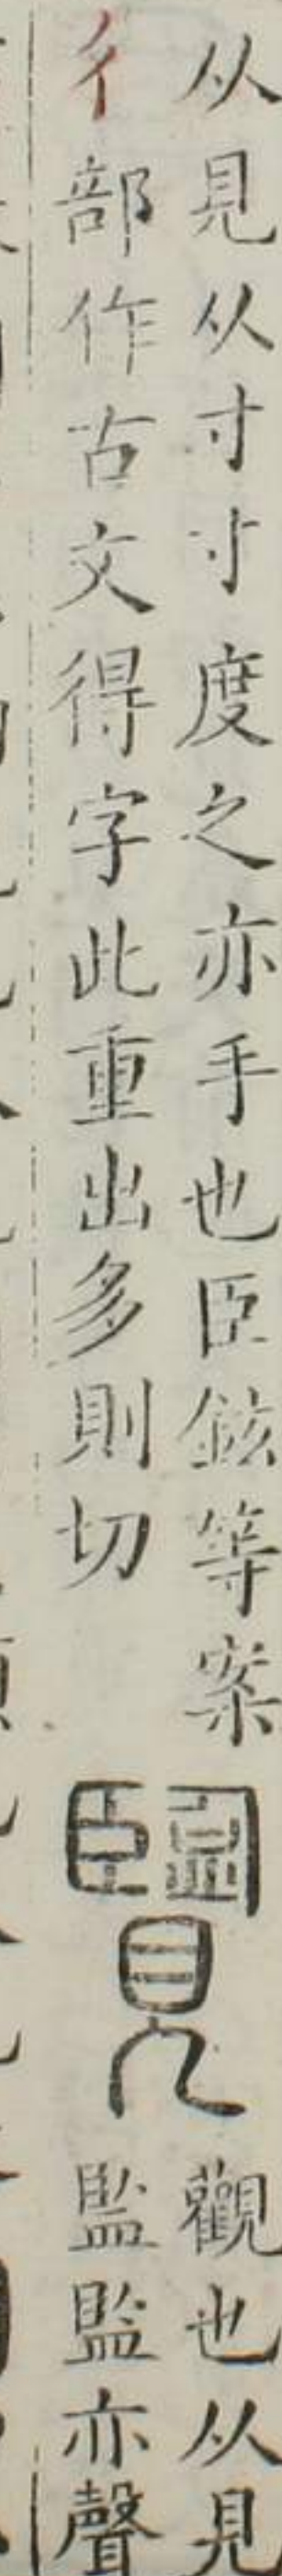 从見从寸寸度之亦手也臣鉉等案
彳部作古文得字此重出多則切
覽
觀也从見
監監亦聲